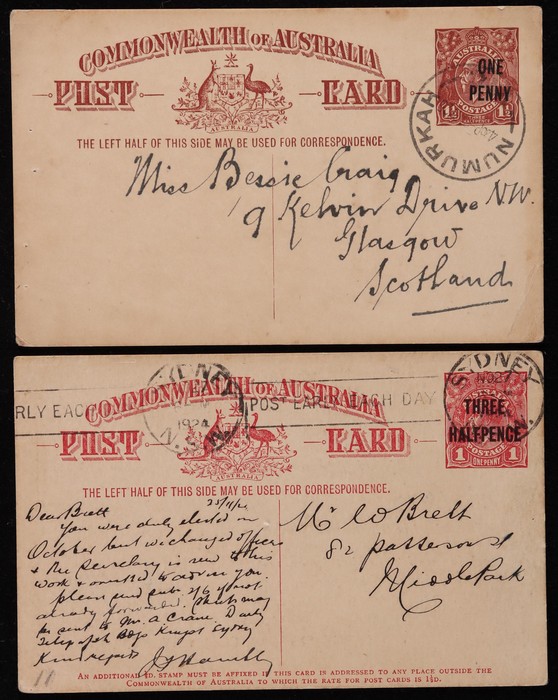 COMMONWEALTH OF AUSTRALIA
POST CARD
AUSTRALIA
THE LEFT HALF OF THIS SIDE MAY BE USED FOR CORRESPONDENCE.
AUSTRALIA
ONE
PENNY
1½ POSTAGE 1½
NUMURKAH
Miss Bessie Craig
9 Kelvin Drive N.W.
Glasgow
Scotland
COMMONWEALTH OF AUSTRALIA
POST CARD
THE LEFT HALF OF THIS SIDE MAY BE USED FOR CORRESPONDENCE.
SYDNEY
1924
N.S.W.
RLY EACH
POST EARLY EACH DAY
SYDNEY
THREE
HALFPENCE
POSTAGE
1 ONE PENNY 1
Dear Brett
You were duly elected in
October but we changed officers
& the Secretary is new to this
work & omitted to advise you.
please send sub 2/6 if not
already forwarded.
be sent to Mr. A Crane. Daily
Telegraph Kings Sydney
Kind regards
Mr W Brett
82 Patterson St
Middle Park
AN ADDITIONAL ½D. STAMP MUST BE AFFIXED IF THIS CARD IS ADDRESSED TO ANY PLACE OUTSIDE THE
COMMONWEALTH OF AUSTRALIA TO WHICH THE RATE FOR POST CARDS IS 1½D.